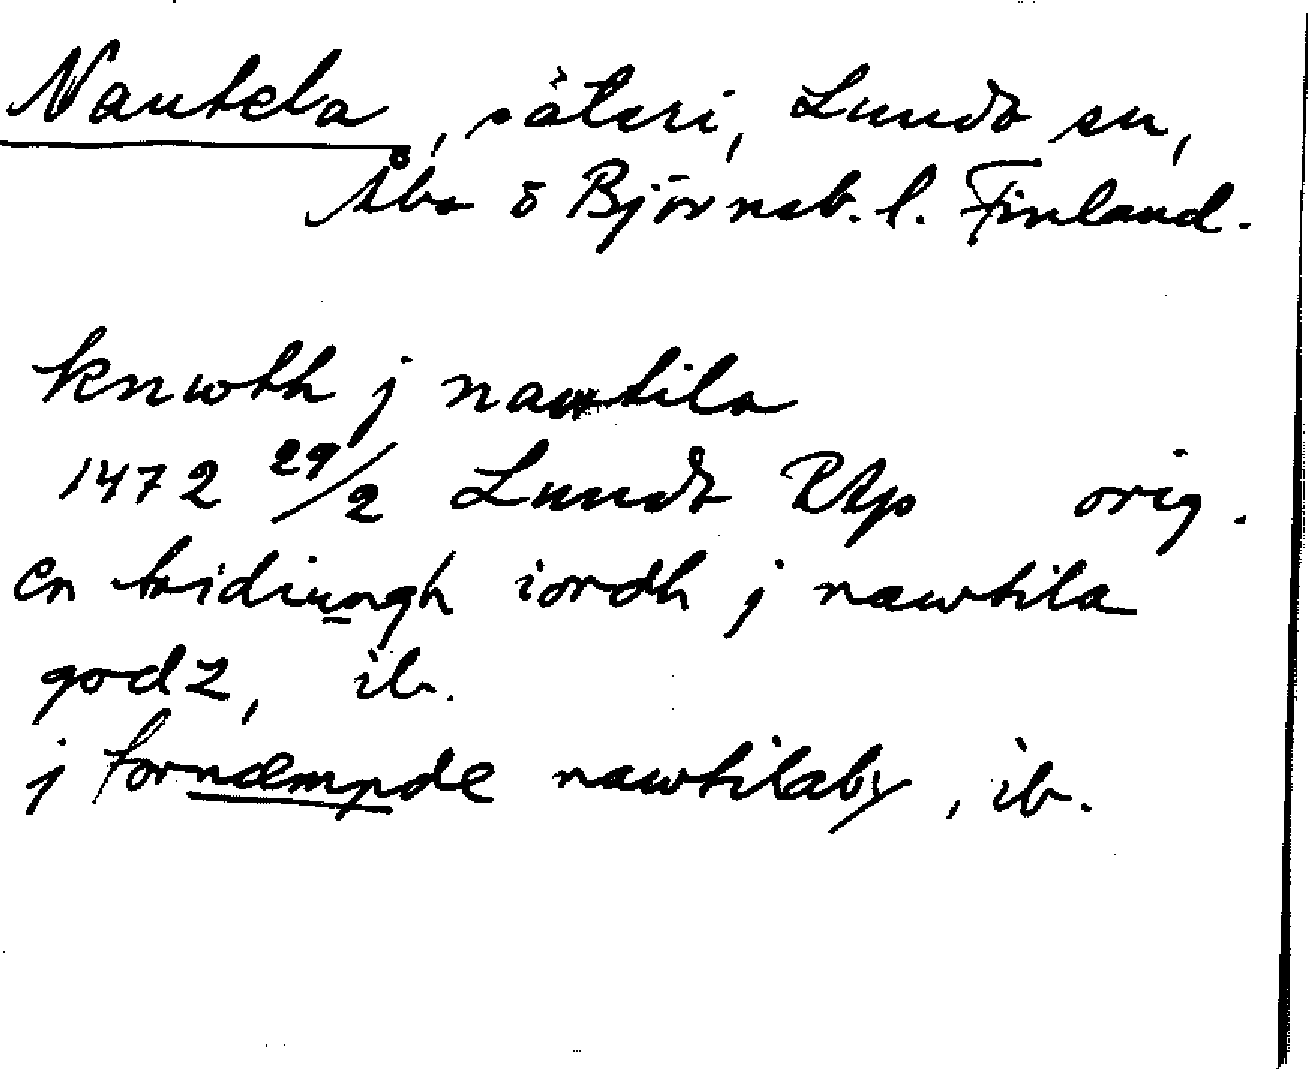 Nautela, säteri, Lundo sn,
Åbo o Björneb. l. Finland.
knwth j nawtila
1472 29/2 Lundo RAp orig.
en tridiungh iordh j nawtila
godz, ib.
j fornæmpde nawtilaby, ib.